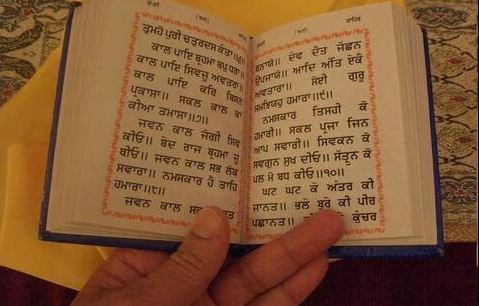 ਚੌਪਈ
(੫੮)
ਸਾਹਿਬ
ਤੁਮਹੋ ਪੁਰੀ ਚਤੁਰਦਸ
ਕਾਲ ਪਾਇ ਬ੍ਰਹਮਾ ਬਪੁ ਧਰਾ॥
ਕਾਲ ਪਾਇ ਸਿਵਜੂ ਅਵਤਰਾ॥
ਕਾਲ ਪਾਇ ਕਰਿ ਬਿਸਨੁ
ਪ੍ਰਕਾਸਾ॥ ਸਕਲ ਕਾਲ ਕਾ
ਕੀਆ ਤਮਾਸਾ॥੭॥
ਜਵਨ ਕਾਲ ਜੋਗੀ ਸਿਵ
ਕੀਓ॥ ਬੇਦ ਰਾਜ ਬ੍ਰਹਮਾ ਜੂ
ਥੀਓ॥ ਜਵਨ ਕਾਲ ਸਭ ਲੋਕ
ਸਵਾਰਾ॥ ਨਮਸਕਾਰ ਹੈ ਤਾਹਿ
ਹਮਾਰਾ॥੮॥
ਜਵਨ ਕਾਲ ਸਭ ਜਗਤ
ਚੌਪਈ
ਸਾਹਿਬ
ਬਨਾਯੋ॥ ਦੇਵ ਦੈਤ ਜੱਛਨ
ਉਪਜਾਯੋ॥ ਆਦਿ ਅੰਤਿ ਏਕੈ
ਅਵਤਾਰਾ॥ ਸੋਈ ਗੁਰੂ
ਸਮਝਿਯਹੁ ਹਮਾਰਾ॥੯॥
ਨਮਸਕਾਰ ਤਿਸਹੀ ਕੋ
ਹਮਾਰੀ॥ ਸਕਲ ਪ੍ਰਜਾ ਜਿਨ
ਆਪ ਸਵਾਰੀ॥ ਸਿਵਕਨ ਕੋ
ਸਵਗੁਨ ਸੁਖ ਦੀਓ॥ ਸੱਤ੍ਰੁਨ ਕੋ
ਪਲ ਮੋ ਬਧ ਕੀਓ॥੧੦॥
ਘਟ ਘਟ ਕੇ ਅੰਤਰ ਕੀ
ਜਾਨਤ॥ ਭਲੇ ਬੁਰੇ ਕੀ ਪੀਰ
ਪਛਾਨਤ॥ ਕੁੰਚਰ